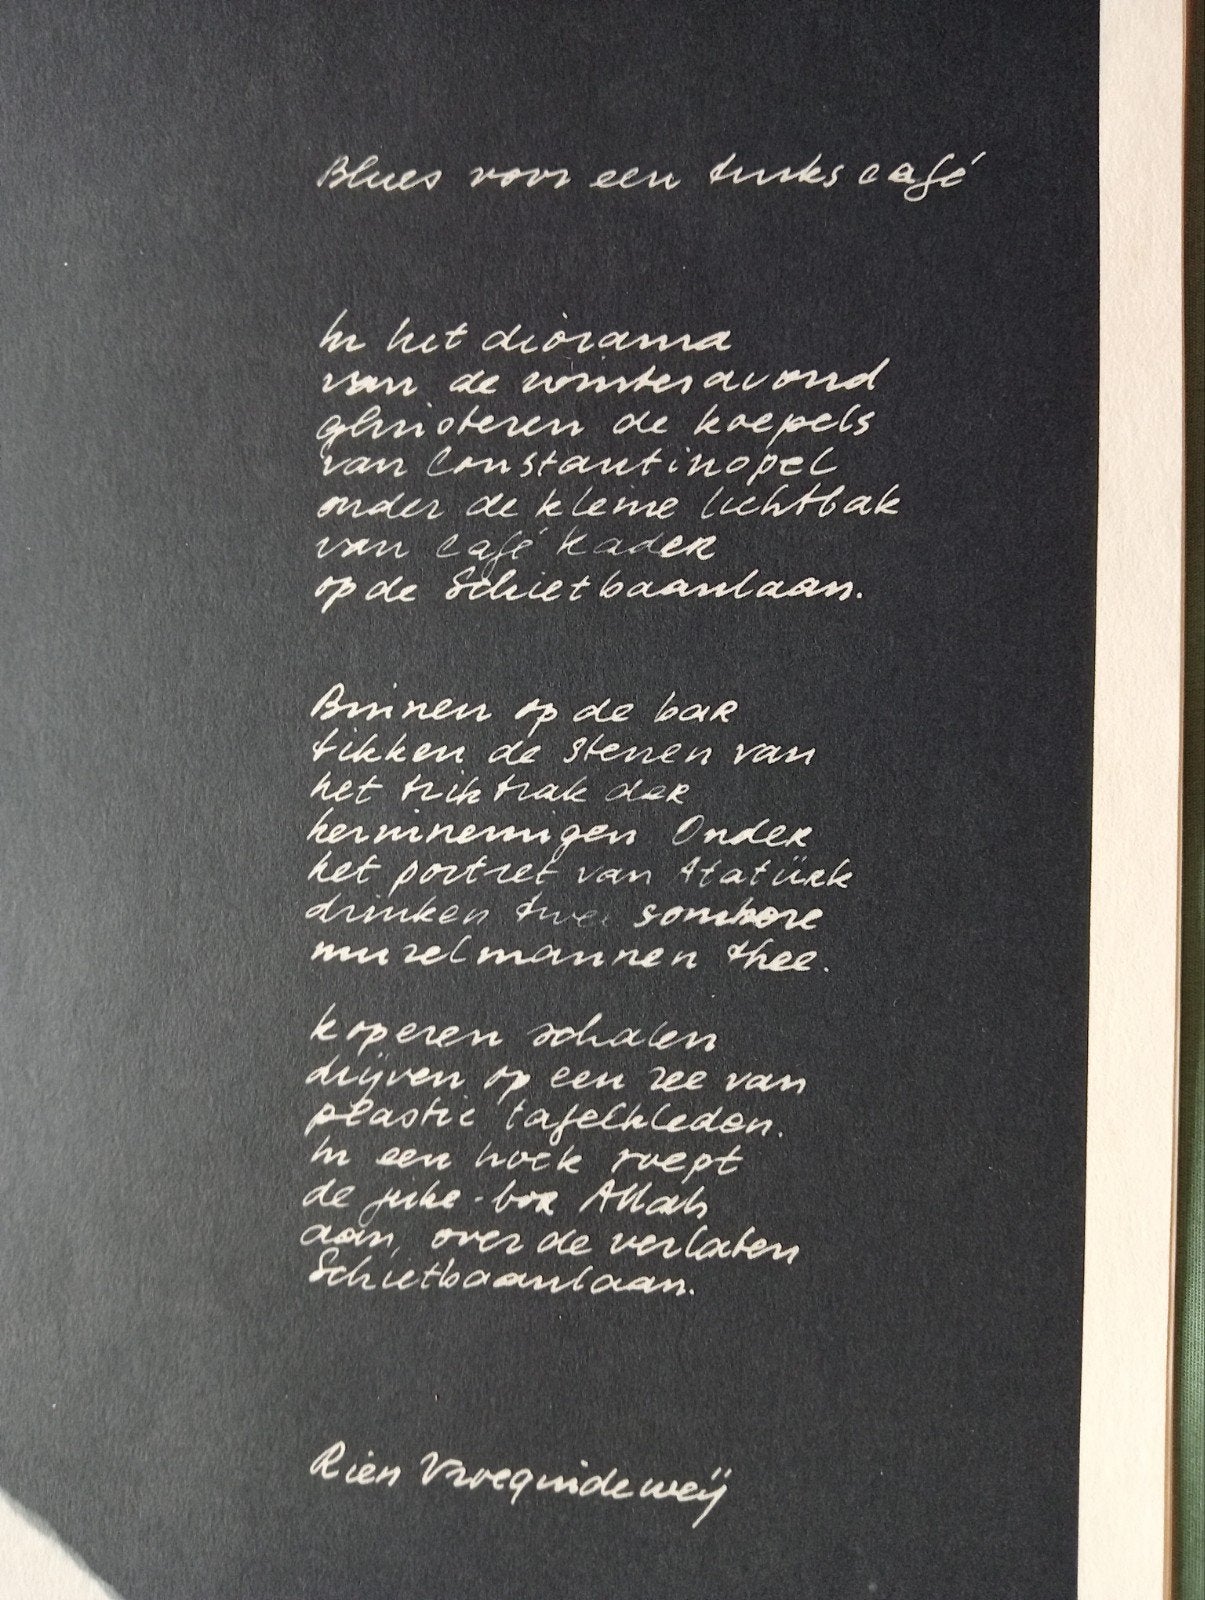 Blues voor een turks café
In het diorama
van de winteravond
glinsteren de koepels
van Constantinopel
onder de kleine lichtbak
van café Kader
op de Schietbaanlaan.
Binnen op de bar
tikken de stenen van
het triktrak der
herinneringen Onder
het portret van Atatürk
drinken twee sombere
muzelmannen thee.
koperen schalen
drijven op een zee van
plastic tafelkleden.
In een hoek roept
de juke-box Allah
aan, over de verlaten
Schietbaanlaan.
Rien Vroegindeweij